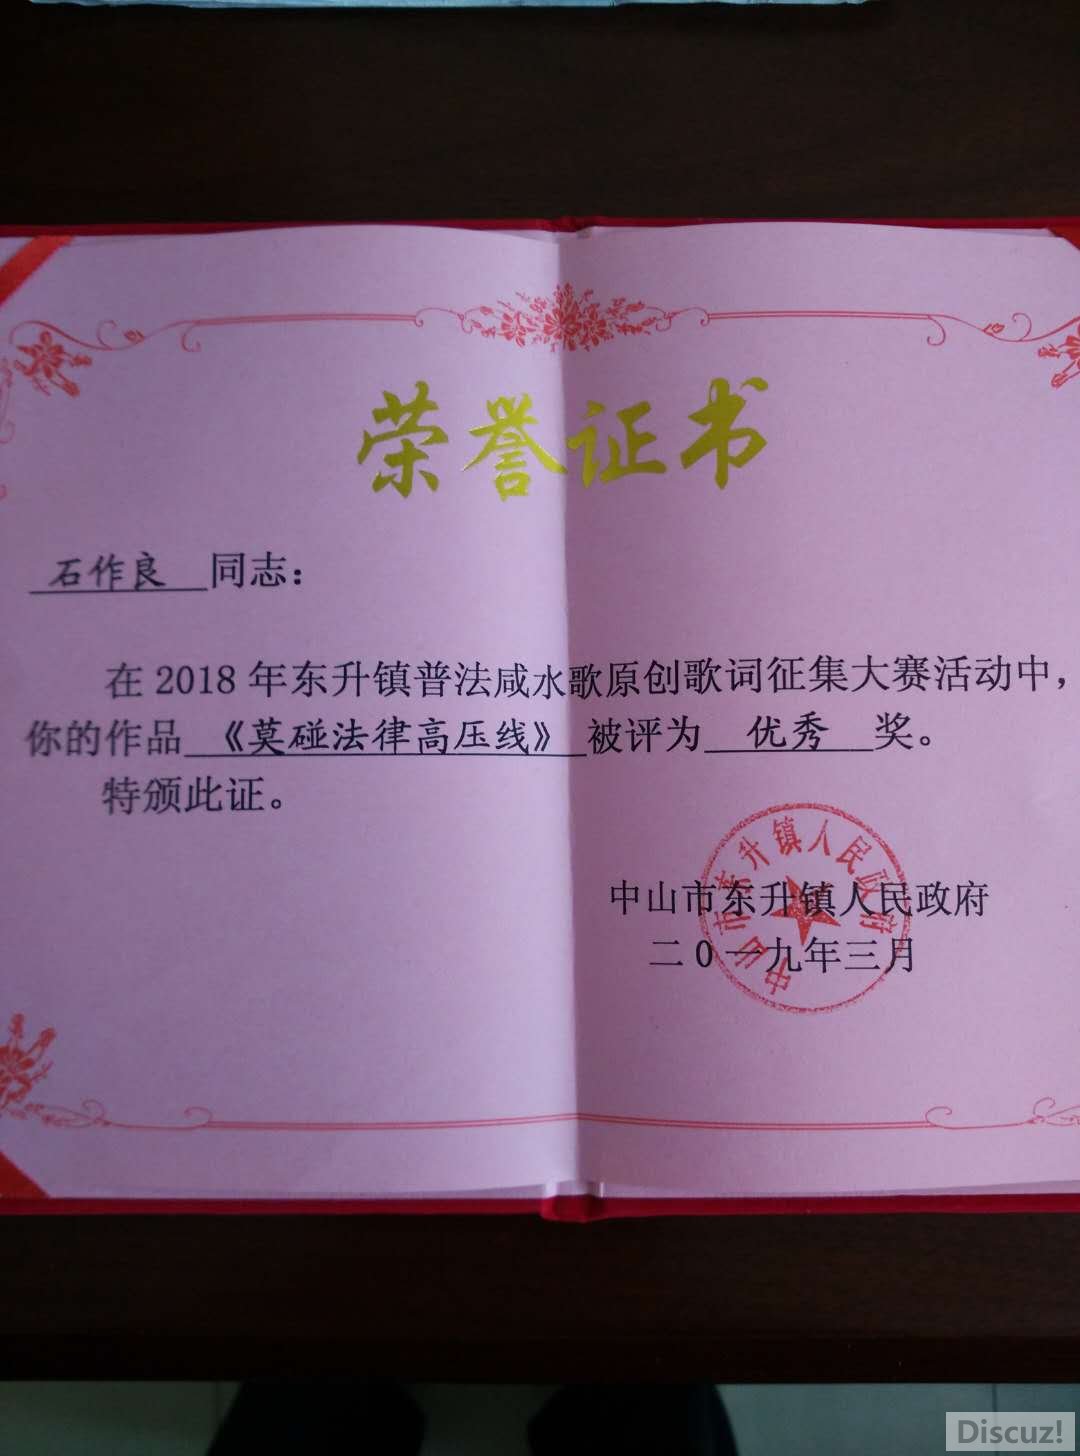 荣誉证书
石作良 同志：
在2018年东升镇普法咸水歌原创歌词征集大赛活动中，
你的作品 《莫碰法律高压线》 被评为 优秀 奖。
特颁此证。
中山市东升镇人民政府
中山市东升镇人民政府
二0一九年三月
Discuz!